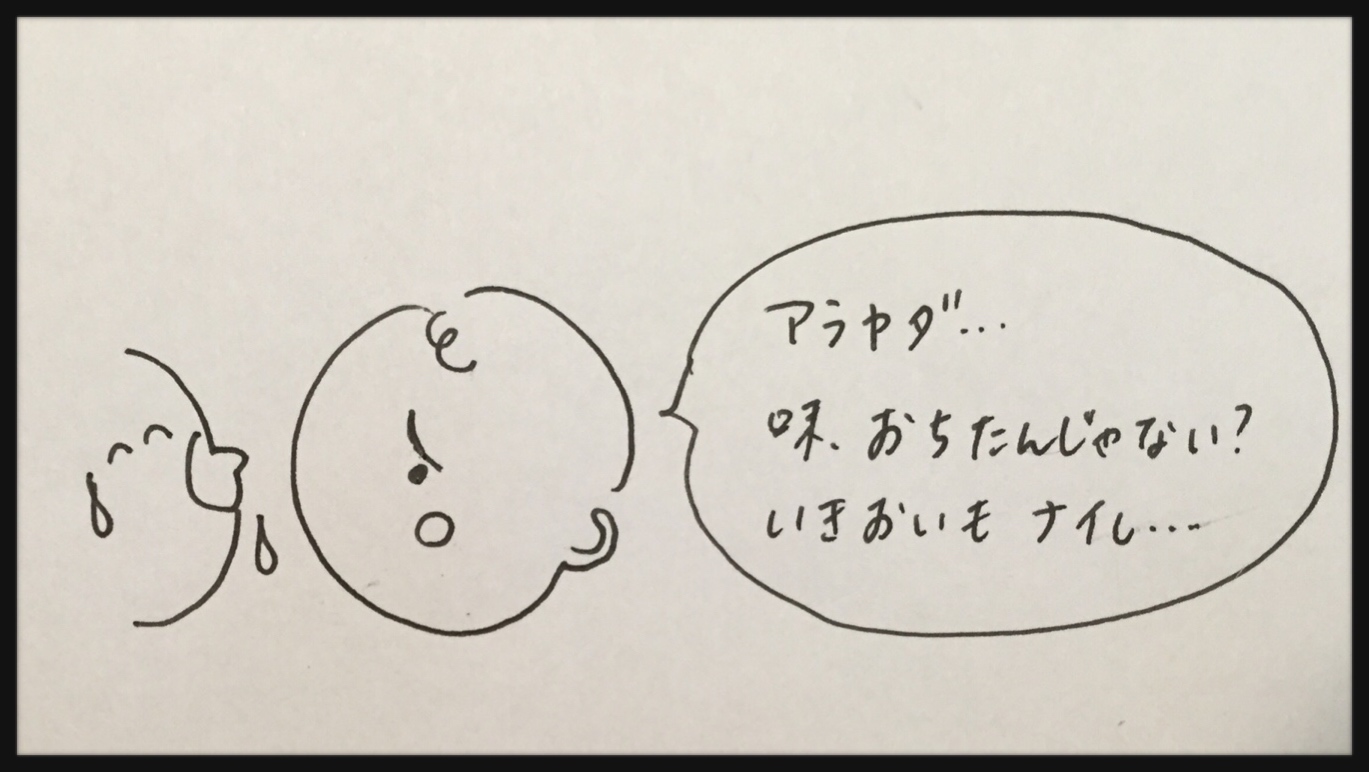 アラヤダ…
味、おちたんじゃない?
いきおいも ナイし….